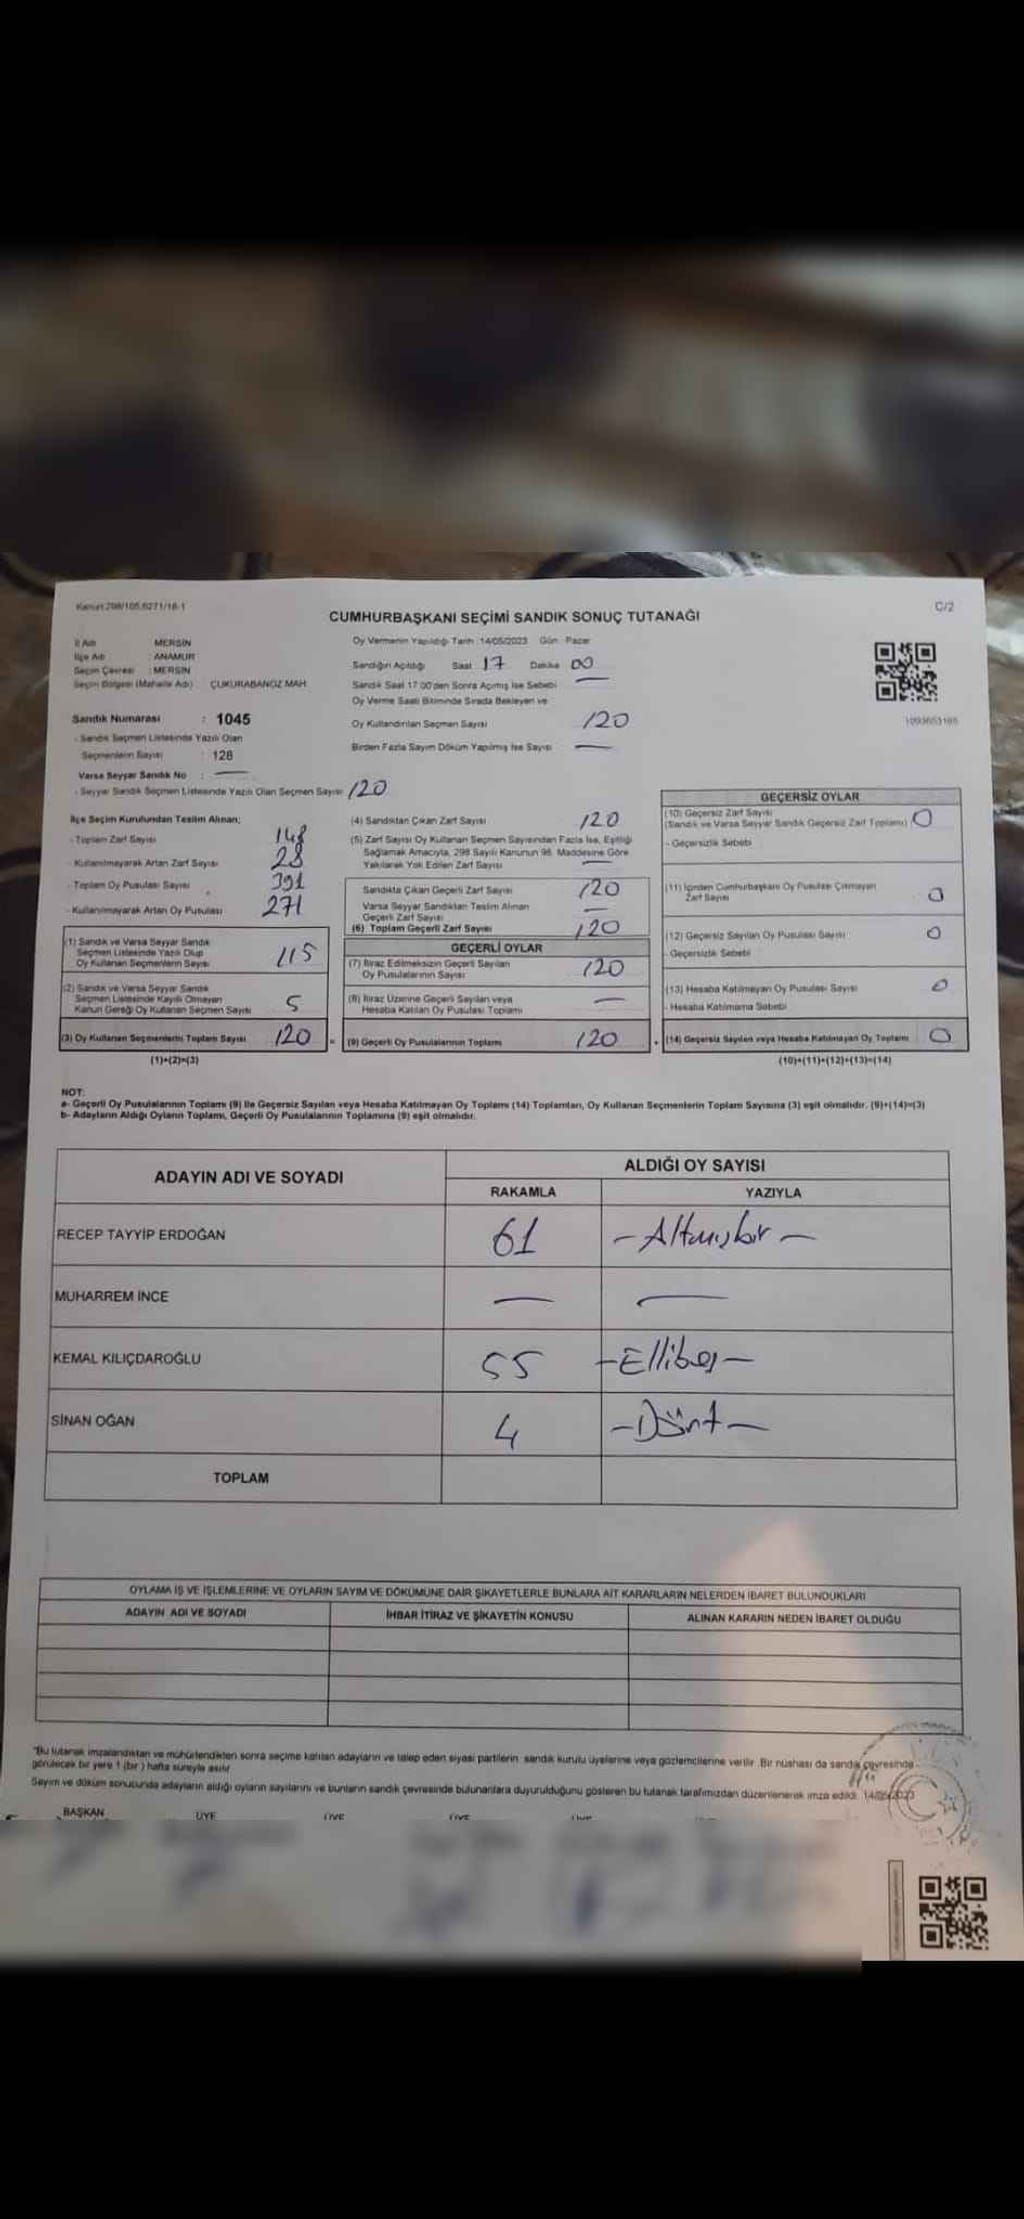 Kanun:298/105,6271/18-1
C/2
CUMHURBAŞKANI SEÇİMİ SANDIK SONUÇ TUTANAĞI
İl Adı MERSİN
İlçe Adı : ANAMUR
Seçim Çevresi : MERSİN
Seçim Bölgesi (Mahalle Adı) ÇUKURABANOZ MAH.
Sandık Numarası : 1045
- Sandık Seçmen Listesinde Yazılı Olan
Seçmenlerin Sayısı : 128
Varsa Seyyar Sandık No : —
- Seyyar Sandık Seçmen Listesinde Yazılı Olan Seçmen Sayısı 120
Oy Vermenin Yapıldığı Tarih :14/05/2023 Gün : Pazar
Sandığın Açıldığı Saat 17 Dakika 00
Sandık Saat 17:00'den Sonra Açılmış İse Sebebi —
Oy Verme Saati Bitiminde Sırada Bekleyen ve
Oy Kullandırılan Seçmen Sayısı 120
Birden Fazla Sayım Döküm Yapılmış İse Sayısı —
1093653165
İlçe Seçim Kurulundan Teslim Alınan;
- Toplam Zarf Sayısı 148
- Kullanılmayarak Artan Zarf Sayısı 28
- Toplam Oy Pusulası Sayısı 391
- Kullanılmayarak Artan Oy Pusulası 271
(1) Sandık ve Varsa Seyyar Sandık
Seçmen Listesinde Yazılı Olup
Oy Kullanan Seçmenlerin Sayısı 115
(2) Sandık ve Varsa Seyyar Sandık
Seçmen Listesinde Kayıtlı Olmayan
Kanun Gereği Oy Kullanan Seçmen Sayısı 5
(3) Oy Kullanan Seçmenlerin Toplam Sayısı 120
(1)+(2)=(3)
(4) Sandıktan Çıkan Zarf Sayısı 120
(5) Zarf Sayısı Oy Kullanan Seçmen Sayısından Fazla İse, Eşitliği
Sağlamak Amacıyla, 298 Sayılı Kanunun 98. Maddesine Göre
Yakılarak Yok Edilen Zarf Sayısı —
Sandıkta Çıkan Geçerli Zarf Sayısı 120
Varsa Seyyar Sandıktan Teslim Alınan
Geçerli Zarf Sayısı —
(6) Toplam Geçerli Zarf Sayısı 120
GEÇERLİ OYLAR
(7) İtiraz Edilmeksizin Geçerli Sayılan
Oy Pusulalarının Sayısı 120
(8) İtiraz Üzerine Geçerli Sayılan veya
Hesaba Katılan Oy Pusulası Toplamı —
= (9) Geçerli Oy Pusulalarının Toplamı 120
GEÇERSİZ OYLAR
(10) Geçersiz Zarf Sayısı
(Sandık ve Varsa Seyyar Sandık Geçersiz Zarf Toplamı) 0
- Geçersizlik Sebebi
(11) İçinden Cumhurbaşkanı Oy Pusulası Çıkmayan
Zarf Sayısı 0
(12) Geçersiz Sayılan Oy Pusulası Sayısı 0
- Geçersizlik Sebebi
(13) Hesaba Katılmayan Oy Pusulası Sayısı 0
- Hesaba Katılmama Sebebi
+ (14) Geçersiz Sayılan veya Hesaba Katılmayan Oy Toplamı 0
(10)+(11)+(12)+(13)=(14)
NOT:
a- Geçerli Oy Pusulalarının Toplamı (9) ile Geçersiz Sayılan veya Hesaba Katılmayan Oy Toplamı (14) Toplamları, Oy Kullanan Seçmenlerin Toplam Sayısına (3) eşit olmalıdır. (9)+(14)=(3)
b- Adayların Aldığı Oyların Toplamı, Geçerli Oy Pusulalarının Toplamına (9) eşit olmalıdır.
ADAYIN ADI VE SOYADI
ALDIĞI OY SAYISI
RAKAMLA YAZIYLA
RECEP TAYYİP ERDOĞAN 61 - Altmışbir -
MUHARREM İNCE — —
KEMAL KILIÇDAROĞLU 55 - Ellibeş -
SİNAN OĞAN 4 - Dört -
TOPLAM
OYLAMA İŞ VE İŞLEMLERİNE VE OYLARIN SAYIM VE DÖKÜMÜNE DAİR ŞİKAYETLERLE BUNLARA AİT KARARLARIN NELERDEN İBARET BULUNDUKLARI
ADAYIN ADI VE SOYADI İHBAR İTİRAZ VE ŞİKAYETİN KONUSU ALINAN KARARIN NEDEN İBARET OLDUĞU
"Bu tutanak imzalandıktan ve mühürlendikten sonra seçime katılan adayların ve talep eden siyasi partilerin sandık kurulu üyelerine veya gözlemcilerine verilir. Bir nüshası da sandık çevresinde
görülecek bir yere 1 (bir ) hafta süreyle asılır
Sayım ve döküm sonucunda adayların aldığı oyların sayılarını ve bunların sandık çevresinde bulunanlara duyurulduğunu gösteren bu tutanak tarafımızdan düzenlenerek imza edildi. 14/05/2023
BAŞKAN ÜYE ÜYE ÜYE